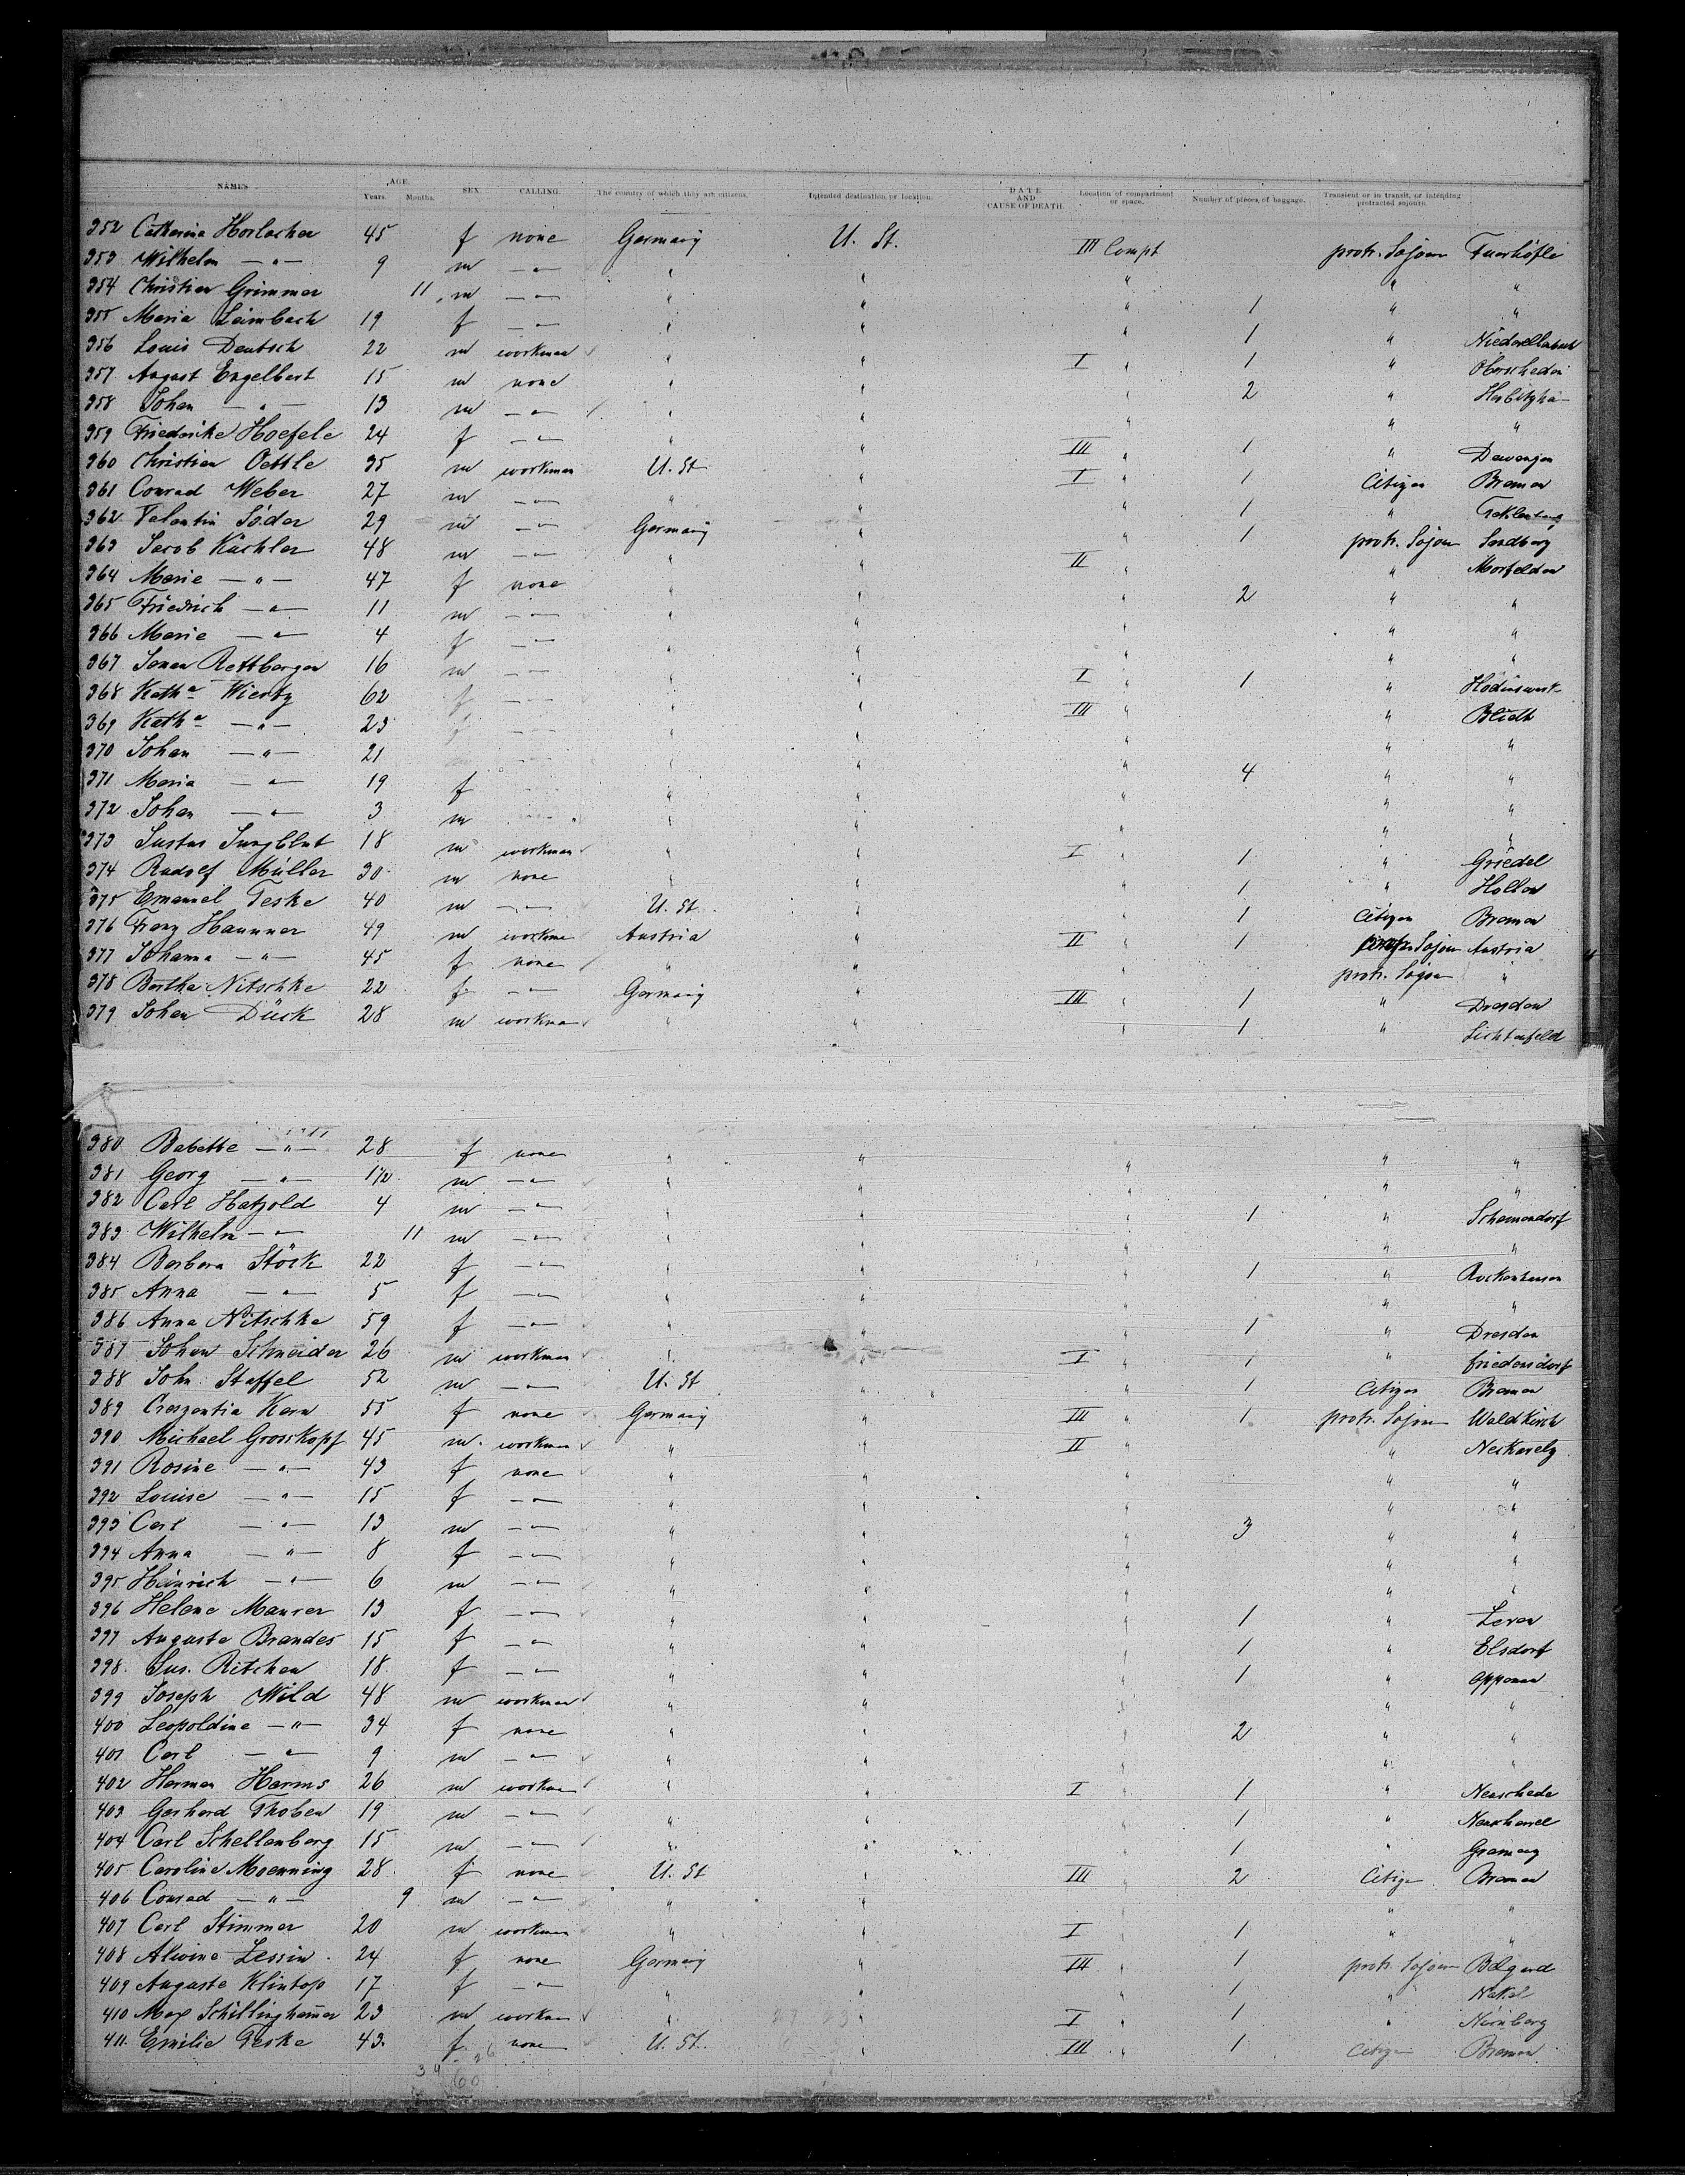 NAMES AGE. Years. Months. SEX. CALLING. The country of which they are citizens. Intended destination or location. DATE AND CAUSE OF DEATH. Location of compartment or space. Number of pieces of baggage. Transient or in transit, or intending protracted sojourn.
352 Catharina Horlacher 45 f none Germany U. St. III Compt protr. Sojourn
353 Wilhelm — " — 9 m — " — " " " " "
354 Christian Grimmer 11 m — " — " " " 1 " "
355 Maria Leimbach 19 f — " — " " " 1 "
356 Louis Deutsch 22 m workman " " I " 1 "
357 August Engelbert 15 m none " " " 2 "
358 Johan — " — 13 m — " — " " " " "
359 Friedrike Hoefele 24 f — " — " " III " 1 "
360 Christian Oettle 35 m workman U. St " I " 1 Citizen Bremen
361 Conrad Weber 27 m — " — " " " 1 "
362 Valentin Söder 29 m — " — Germany " " 1 protr. Sojour Sandberg
363 Jacob Küchler 48 m — " — " " II " " Morfelden
364 Marie — " — 47 f none " " " 2 " "
365 Friedrich — " — 11 m — " — " " " " "
366 Marie — " — 4 f — " — " " " " "
367 Rettberger 16 m — " — " " I " 1 "
368 Katha 62 f — " — " " III " "
369 Katha — " — 23 f — " — " " " " "
370 Johan — " — 21 " " " 4 " "
371 Maria — " — 19 f " " " " "
372 Johan — " — 3 m " " " " "
373 Justus Jungblut 18 m workman " " I " 1 " Griedel
374 Rudolf Müller 30 m none " " " 1 "
375 Emanuel Teske 40 m — " — U. St " " 1 Citizen Bremen
376 Franz Hammer 49 m workma Austria " II " 1 Sojour Austria
377 Johanna — " — 45 f none " " " protr. Sojou "
378 Bertha Nitschke 22 f — " — Germany " III " 1 " Dresden
379 Johan Dück 28 m workman " " " 1 " Lichtenfeld
380 Babette — " — 28 f none " " " " "
381 Georg — " — 1½ m — " — " " " " "
382 Carl Hatzold 4 m — " — " " " 1 "
383 Wilhelm — " — 11 m — " — " " " " "
384 Barbara Stöck 22 f — " — " " " 1 " Rockenhausen
385 Anna — " — 5 f — " — " " " " "
386 Anna Nitschke 59 f — " — " " " 1 " Dresden
387 Johan Schneider 26 m workman " " I " 1 " friedensdorf
388 John Staffel 52 m — " — U. St " " 1 Citizen Bremen
389 Creszentia Kern 55 f none Germany " III " 1 protr. Sojour Waldkirch
390 Michael Grosskopf 45 m workman " " II " " Neckarelz
391 Rosine — " — 43 f none " " " " "
392 Louise — " — 15 f — " — " " " " "
393 Carl — " — 13 m — " — " " " 3 " "
394 Anna — " — 8 f — " — " " " " "
395 Heinrich — " — 6 m — " — " " " " "
396 Helene Maurer 13 f — " — " " " 1 "
397 Auguste Brandes 15 f — " — " " " 1 " Elsdorf
398 Sus. Ritchen 18 f — " — " " " 1 "
399 Joseph Wild 48 m workman " " " " "
400 Leopoldine — " — 34 f none " " " 2 " "
401 Carl — " — 9 m — " — " " " " "
402 Herman Harms 26 m workman " " I " 1 "
403 Gerhard Thoben 19 m — " — " " " 1 "
404 Carl Schellenberg 15 m — " — " " " 1 "
405 Caroline Moenning 28 f none U. St " III " 2 Citizen Bremen
406 Conrad — " — 9 m — " — " " " " "
407 Carl Stimmer 20 m workman " " I " 1 " "
408 Alwine Zessin 24 f none Germany " III " 1 protr Sojour Belgard
409 Auguste Klintop 17 f — " — " " " 1 " Nakel
410 Max Schillinghamer 23 m workman " " I " 1 " Nürnberg
411 Emilie Teske 43 f none U. St. " III " 1 Citizen Bremen
34 26
60